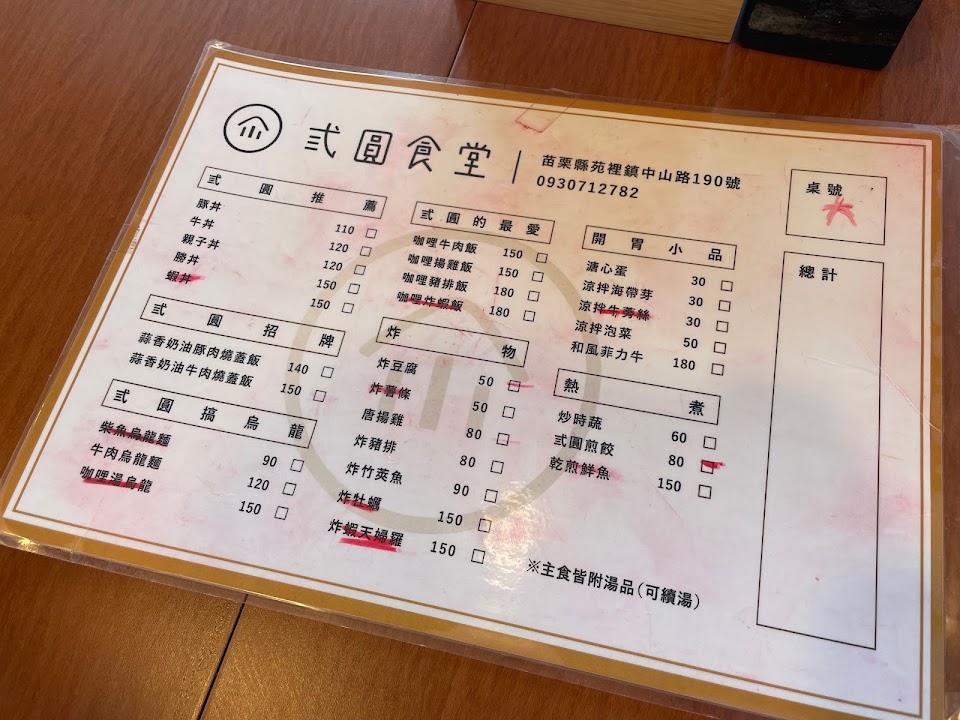 弍圓食堂
苗栗縣苑裡鎮中山路190號
0930712782
桌號
總計
弍圓推薦
豚丼 110 □
牛丼 120 □
親子丼 120 □
勝丼 150 □
蝦丼 150 □
弍圓招牌
蒜香奶油豚肉燒蓋飯 140 □
蒜香奶油牛肉燒蓋飯 150 □
弍圓搞烏龍
柴魚烏龍麵 90 □
牛肉烏龍麵 120 □
咖哩湯烏龍 150 □
弍圓的最愛
咖哩牛肉飯 150 □
咖哩揚雞飯 150 □
咖哩豬排飯 180 □
咖哩炸蝦飯 180 □
炸物
炸豆腐 50 □
炸薯條 50 □
唐揚雞 80 □
炸豬排 80 □
炸竹莢魚 90 □
炸牡蠣 150 □
炸蝦天婦羅 150 □
開胃小品
溏心蛋 30 □
涼拌海帶芽 30 □
涼拌牛蒡絲 30 □
涼拌泡菜 50 □
和風菲力牛 180 □
熱煮
炒時蔬 60 □
弍圓煎餃 80 □
乾煎鮮魚 150 □
※主食皆附湯品(可續湯)